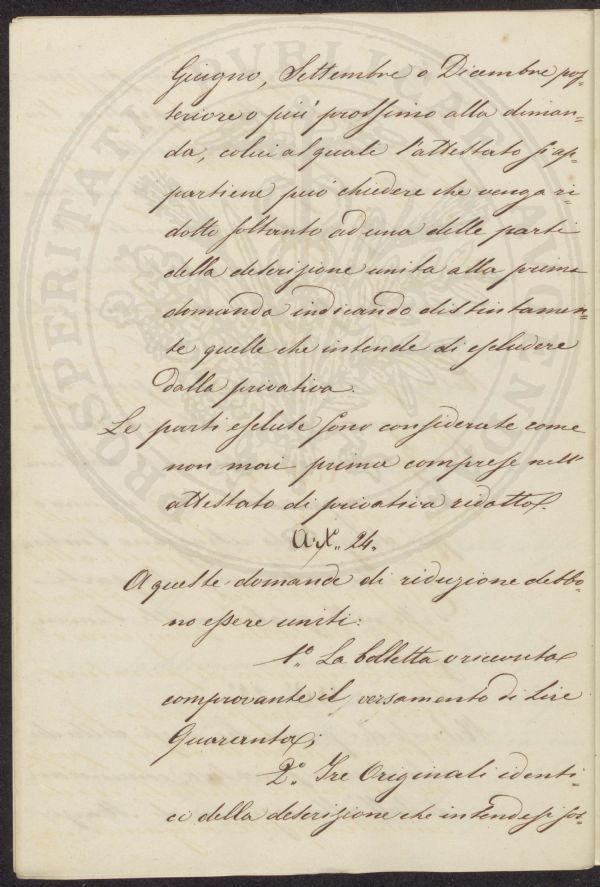 Giugno, Settembre o Dicembre pos=
teriore o più prossimo alla diman=
da, colui al quale l'attestato si ap=
partiene può chiedere che venga ri=
dotto soltanto ad una delle parti
della descrizione unita alla prima
domanda indicando distintamen=
te quelle che intende di escludere
dalla privativa.
Le parti escluse sono considerate come
non mai prima comprese nell'
attestato di privativa ridotto.
Art. 24.
A queste domande di riduzione debbo=
no essere uniti:
1.° La bolletta o ricevuta
comprovante il versamento di Lire
Quaranta;
2.° Tre Originali identi=
ci della descrizione che intendesi sos=
PROSPERITATI PVBLICAE AVGENDAE